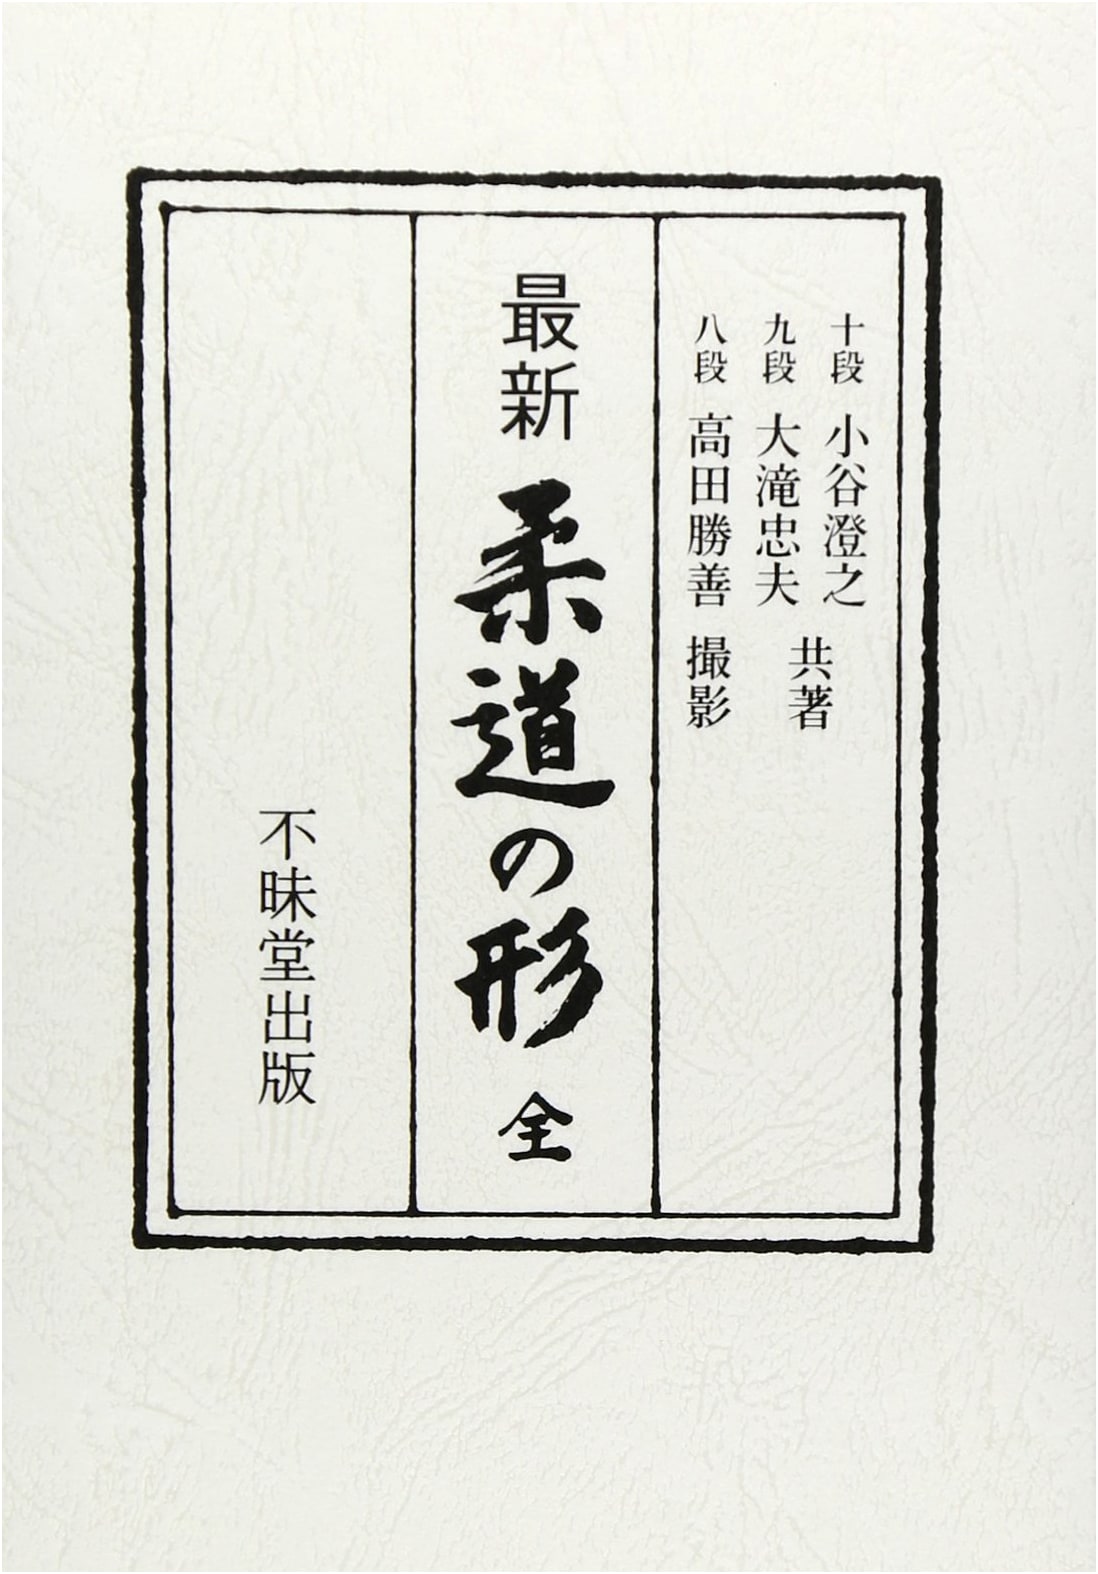 十段 小谷澄之
九段 大滝忠夫
共著
八段 高田勝善 撮影
最新 柔道の形 全
不昧堂出版